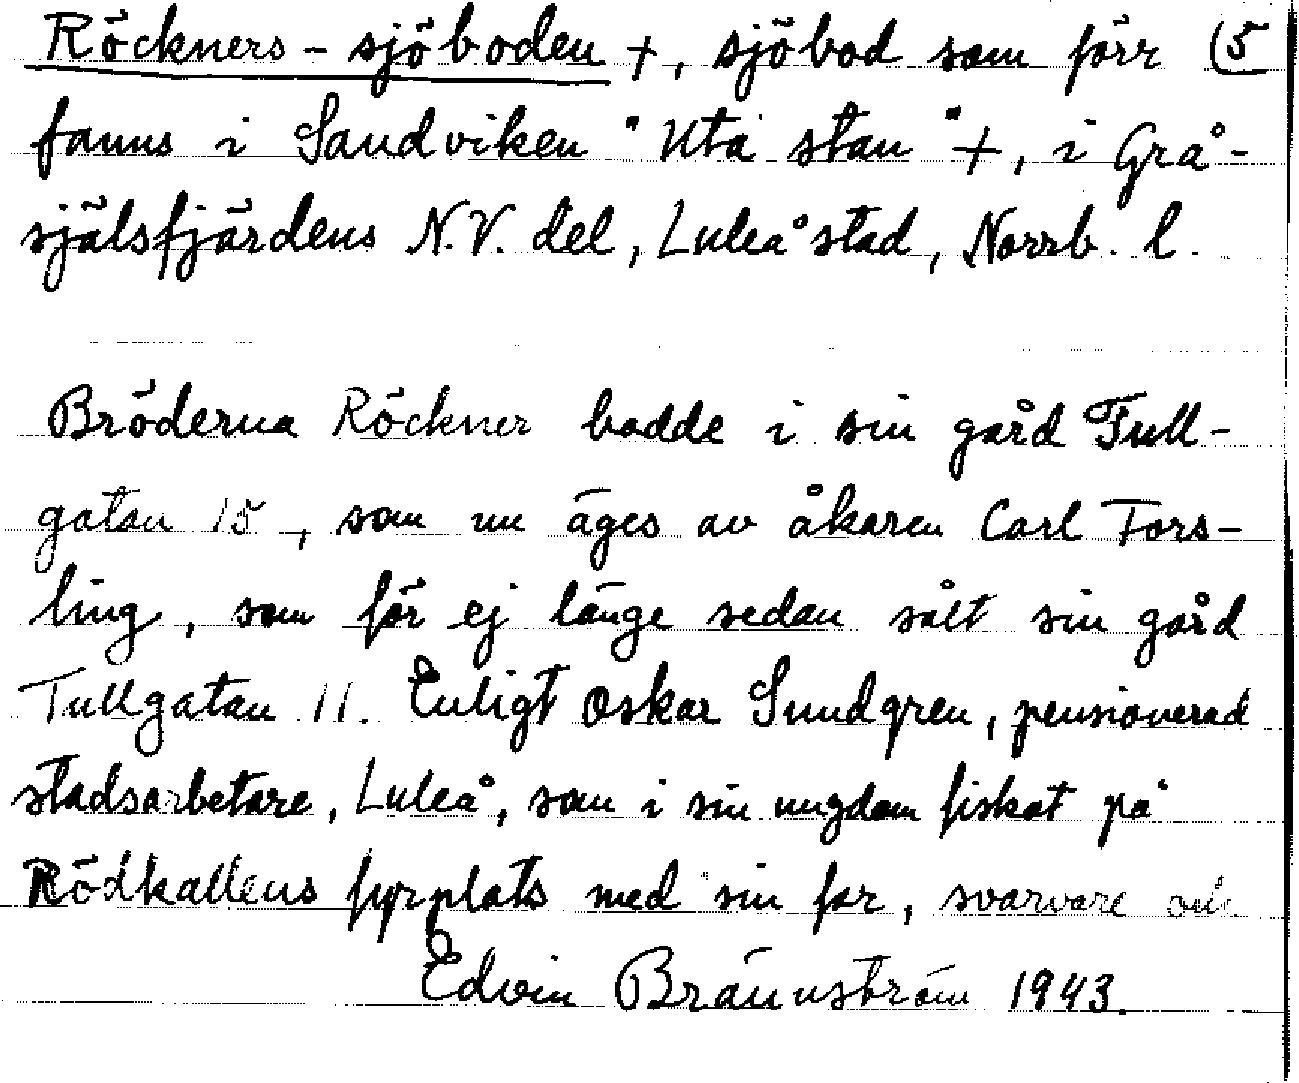 Röckners-sjöboden +, sjöbod som förr (5
fanns i Sandviken "Utå stan" +, i Grå-
själsfjärdens N.V. del, Luleå stad, Norrb. l.
Bröderna Röckner bodde i sin gård Tull-
gatan 15, som nu äges av åkaren Carl Fors-
ling, som för ej länge sedan sålt sin gård
Tullgatan 11. Enligt Oskar Sundgren, pensionerad
stadsarbetare, Luleå, som i sin ungdom fiskat på
Rödkallens fyrplats med sin far, svarvare
Edvin Brännström 1943.